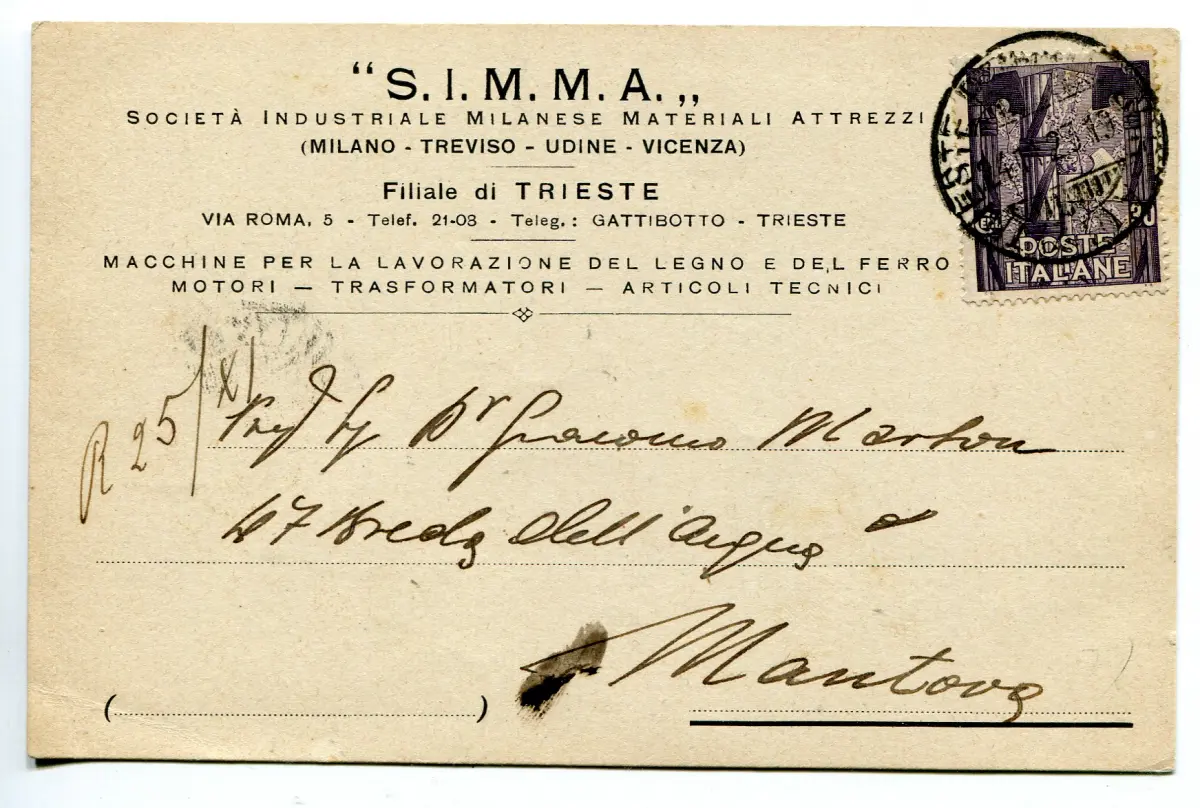 “S. I. M. M. A.„
SOCIETÀ INDUSTRIALE MILANESE MATERIALI ATTREZZI
(MILANO - TREVISO - UDINE - VICENZA)
Filiale di TRIESTE
VIA ROMA, 5 - Telef. 21-03 - Teleg.: GATTIBOTTO - TRIESTE
MACCHINE PER LA LAVORAZIONE DEL LEGNO E DEL FERRO
MOTORI — TRASFORMATORI — ARTICOLI TECNICI
POSTE
ITALIANE
R 25/XI
Dr Giacomo
47 dell'acqua
Mantova